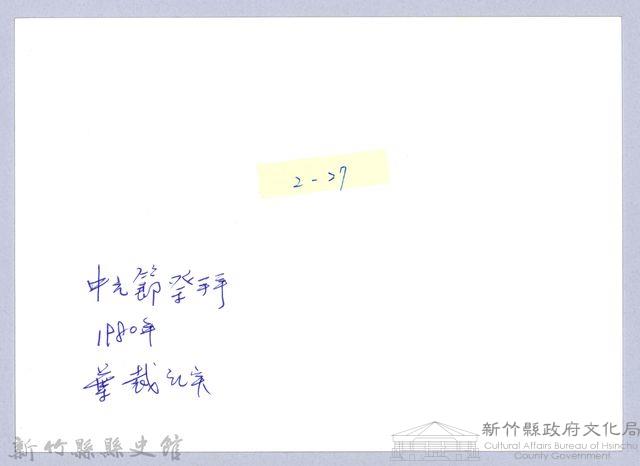 2-27
中元節祭拜
1980年
葉裁記実
新竹縣縣史館
新竹縣政府文化局
Cultural Affairs Bureau of Hsinchu
County Government